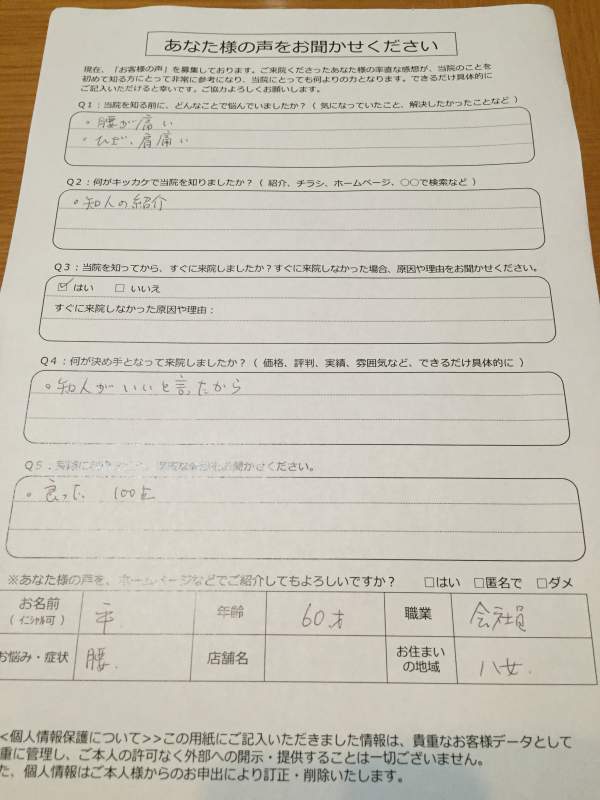 あなた様の声をお聞かせください
現在、「お客様の声」を募集しております。ご来院くださったあなた様の率直な感想が、当院のことを
初めて知る方にとって非常に参考になり、当院にとっても何よりの力となります。できるだけ具体的に
ご記入いただけると幸いです。ご協力よろしくお願いします。
Q1：当院を知る前に、どんなことで悩んでいましたか？（ 気になっていたこと、解決したかったことなど ）
・腰が痛い
・ひざ、肩痛い
Q2：何がキッカケで当院を知りましたか？（ 紹介、チラシ、ホームページ、○○で検索など ）
・知人の紹介
Q3：当院を知ってから、すぐに来院しましたか？すぐに来院しなかった場合、原因や理由をお聞かせください。
☑ はい　□ いいえ
すぐに来院しなかった原因や理由：
Q4：何が決め手となって来院しましたか？（ 価格、評判、実績、雰囲気など、できるだけ具体的に ）
・知人がいいと言ったから
Q5：実際に お聞かせください。
・良った　100点
※あなた様の声を、ホームページなどでご紹介してもよろしいですか？　□はい　□匿名で　□ダメ
お名前
（ イニシャル可 ）
年齢　60才　職業　会社員
お悩み・症状　腰　店舗名　お住まい
の地域　八女
<個人情報保護について>>この用紙にご記入いただきました情報は、貴重なお客様データとして
重に管理し、ご本人の許可なく外部への開示・提供することは一切ございません。
た、個人情報はご本人様からのお申出により訂正・削除いたします。